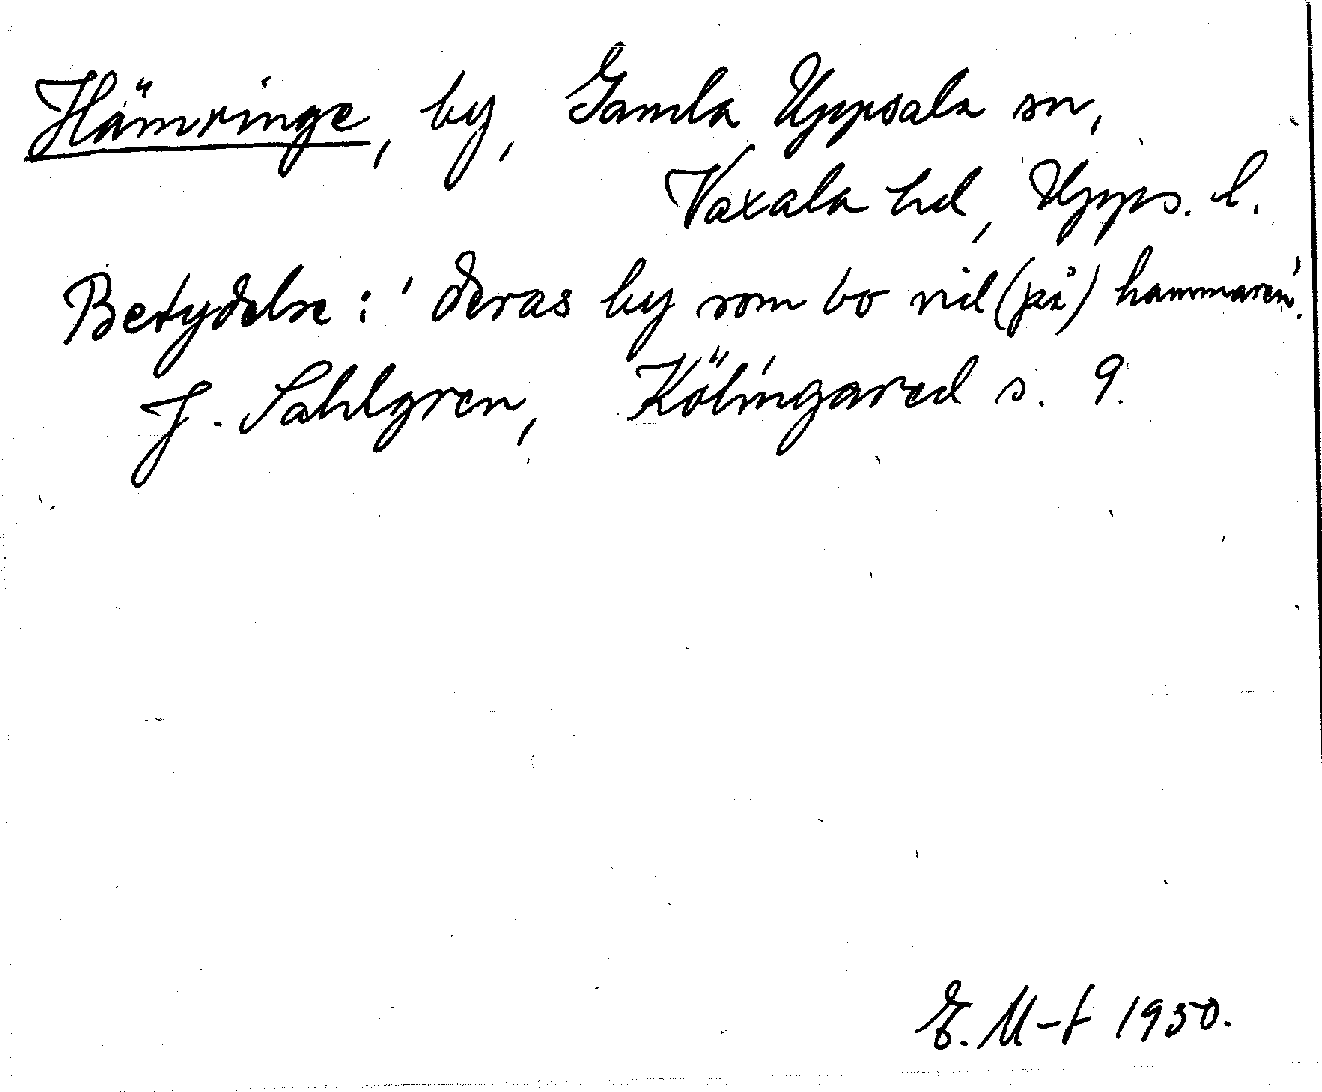 Hämringe, by, Gamla Uppsala sn,
Vaxala hd, Upps. l.
Betydelse: 'deras by som bo vid (på) hammaren'.
J. Sahlgren, Kölingared s. 9.
E. M-t 1950.